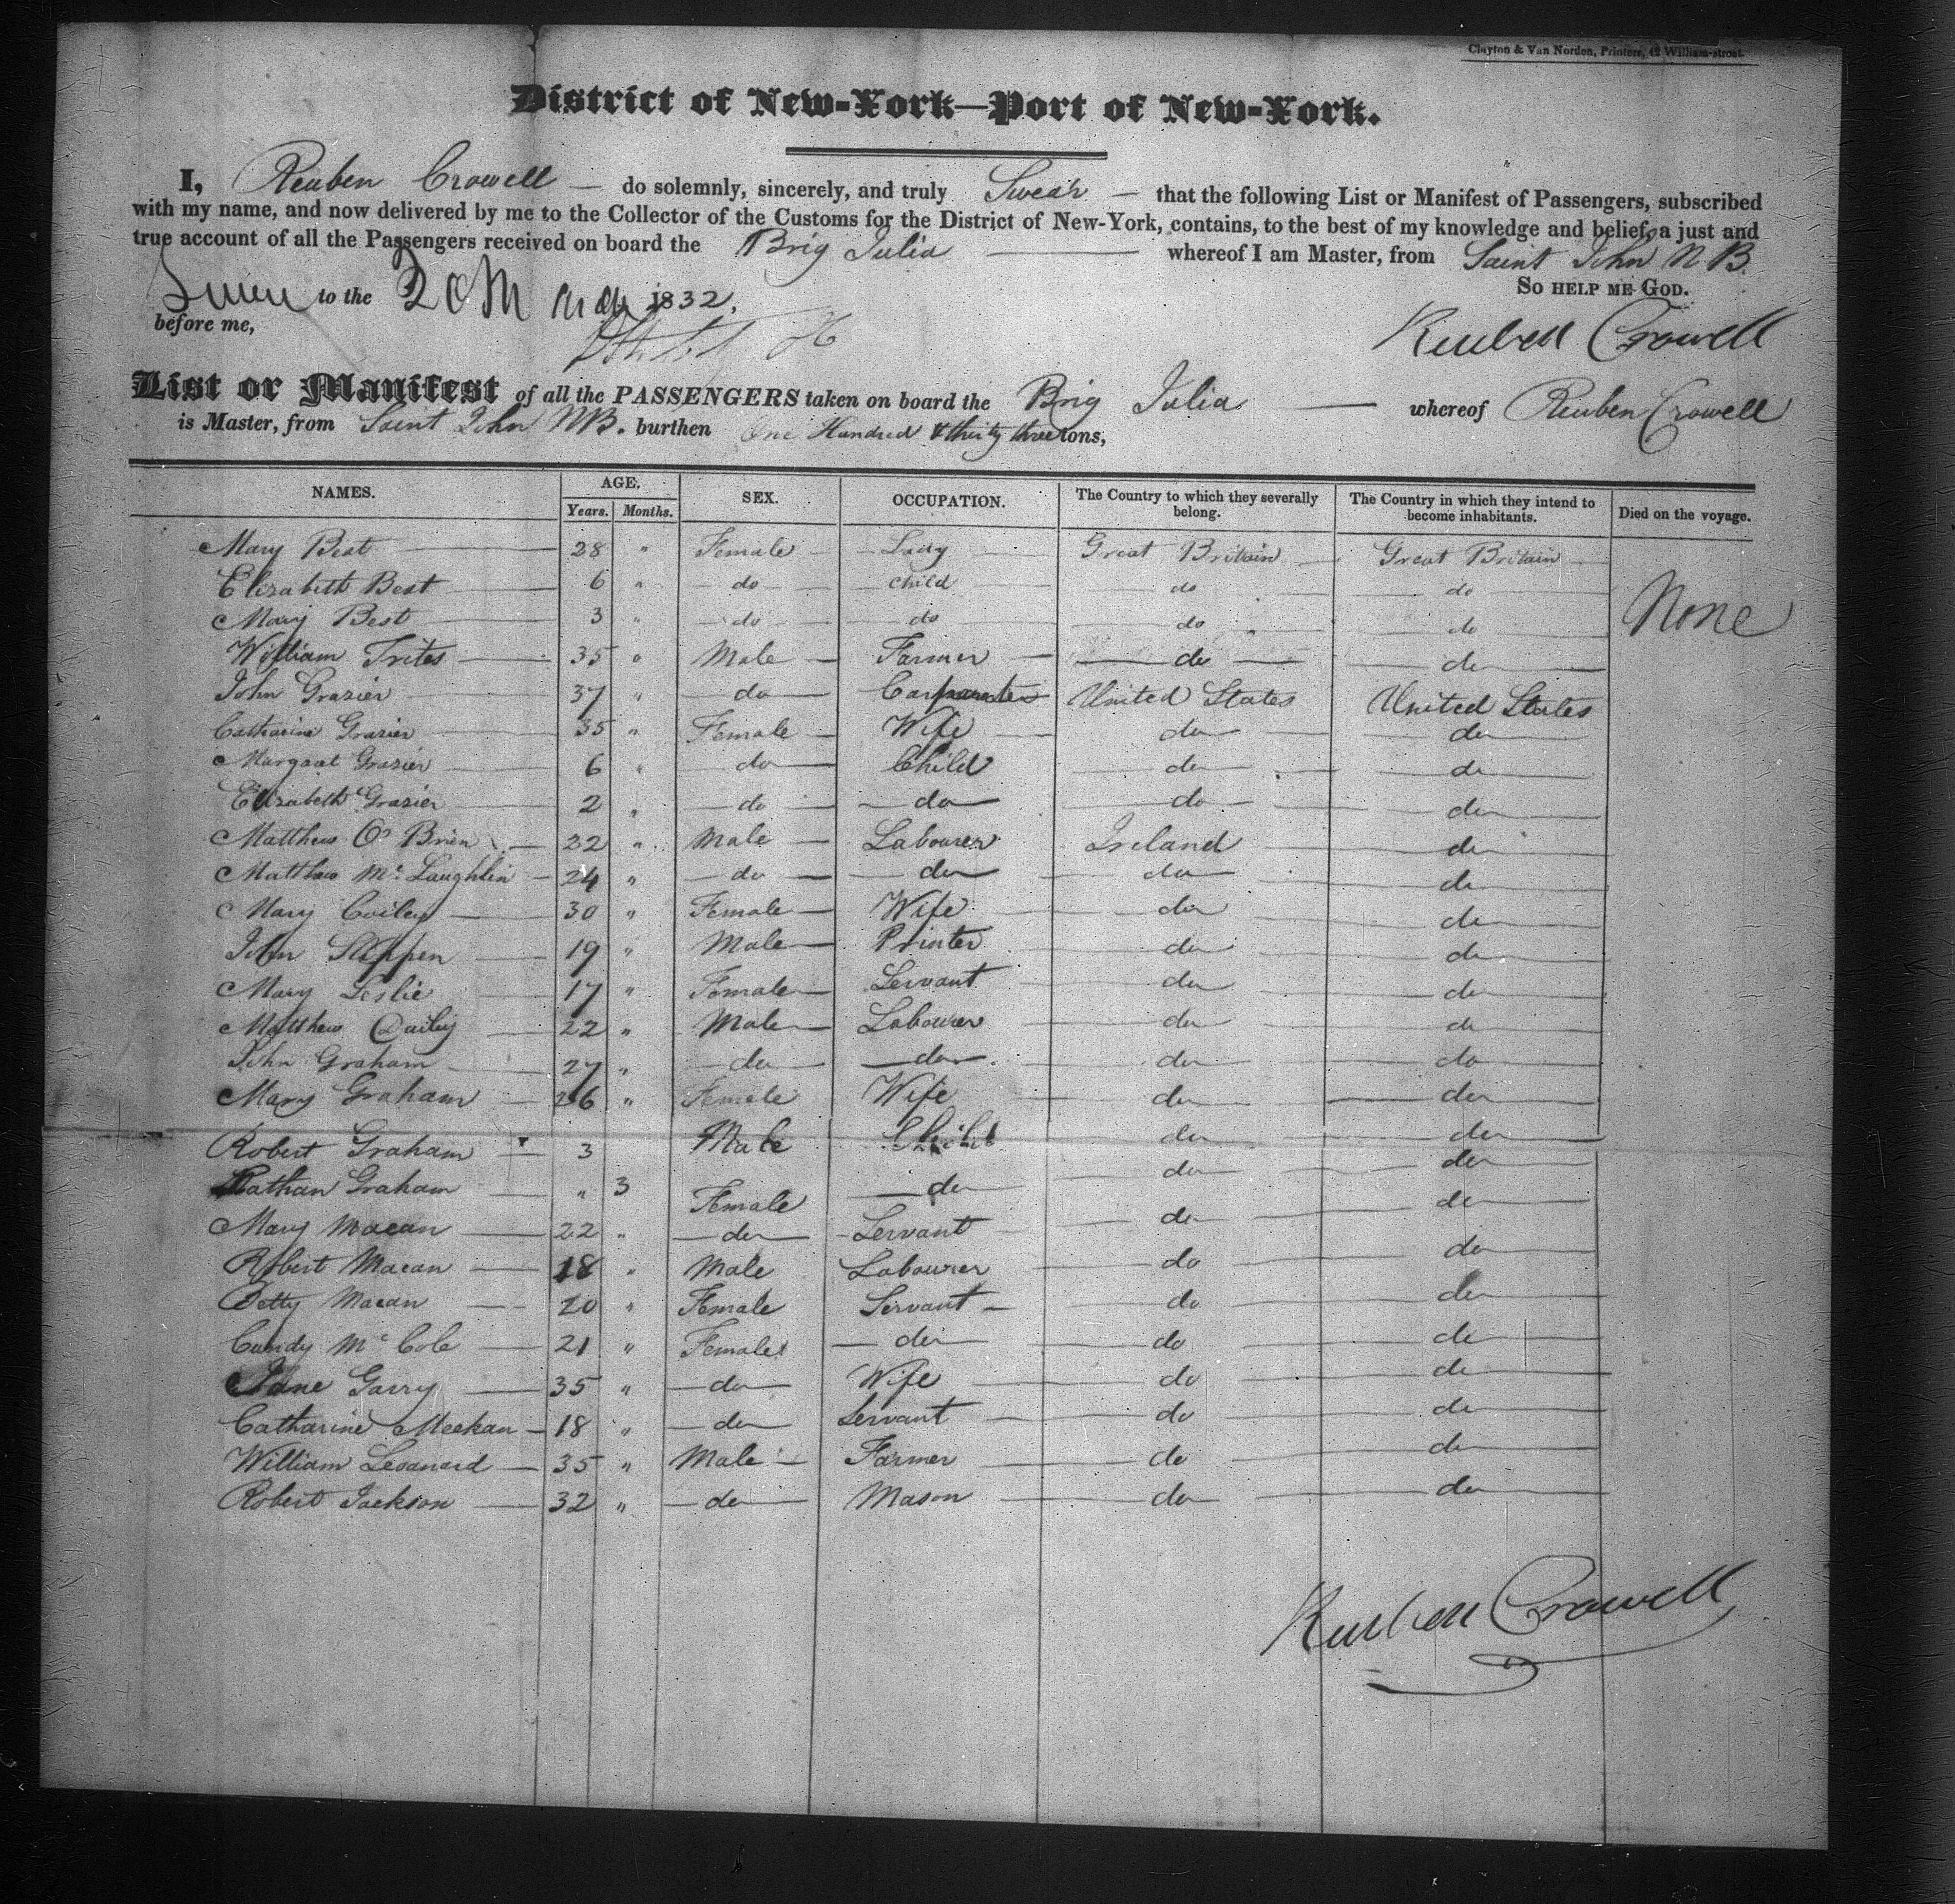 Clayton & Van Norden, Printers, 42 William-street.
District of New-York—Port of New-York.
I, Reuben Crowell — do solemnly, sincerely, and truly Swear — that the following List or Manifest of Passengers, subscribed
with my name, and now delivered by me to the Collector of the Customs for the District of New-York, contains, to the best of my knowledge and belief, a just and
true account of all the Passengers received on board the Brig Julia — whereof I am Master, from Saint John N B.
So help me God.
to the 20 1832.
before me,
Reuben Crowell
List or Manifest of all the PASSENGERS taken on board the Brig Julia — whereof Reuben Crowell
is Master, from Saint John NB. burthen One Hundred & thirty three tons,
NAMES. AGE. SEX. OCCUPATION. The Country to which they severally belong. The Country in which they intend to become inhabitants. Died on the voyage.
Years. Months.
Mary Best 28 " Female Lady Great Britain Great Britain
Elizabeth Best 6 " do Child do do None
Mary Best 3 " do do do do
William Trites 35 " Male Farmer do do
John Grazier 37 " do Carpenter United States United States
Catharine Grazier 35 " Female Wife do do
Margaret Grazier 6 " do Child do do
Elizabeth Grazier 2 " do do do do
Matthew O'Brien 22 " Male Labourer Ireland do
Matthew Mc Laughlin 24 " do do do do
Mary 30 " Female Wife do do
John 19 " Male Printer do do
Mary Leslie 17 " Female Servant do do
Matthew Dailey 22 " Male Labourer do do
John Graham 27 " do do do do
Mary Graham 26 " Female Wife do do
Robert Graham 3 Male Child do do
Graham " 3 Female do do do
Mary Macan 22 " do Servant do do
Robert Macan 18 " Male Labourer do do
Betty Macan 20 " Female Servant do do
Mc Cole 21 " Female do do do
Jane Garry 35 " do Wife do do
Catharine Meekan 18 " do Servant do do
William Leoanard 35 " Male Farmer do do
Robert Jackson 32 " do Mason do do
Reuben Crowell